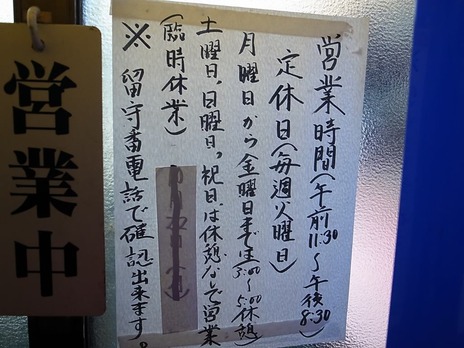 営業時間(午前11:30～午後8:30)
定休日(毎週火曜日)
月曜日から金曜日までは3:00～5:00休憩)
土曜日,日曜日,祝日は休憩なしで営業
(臨時休業)
※留守番電話で確認出来ます。
営業中